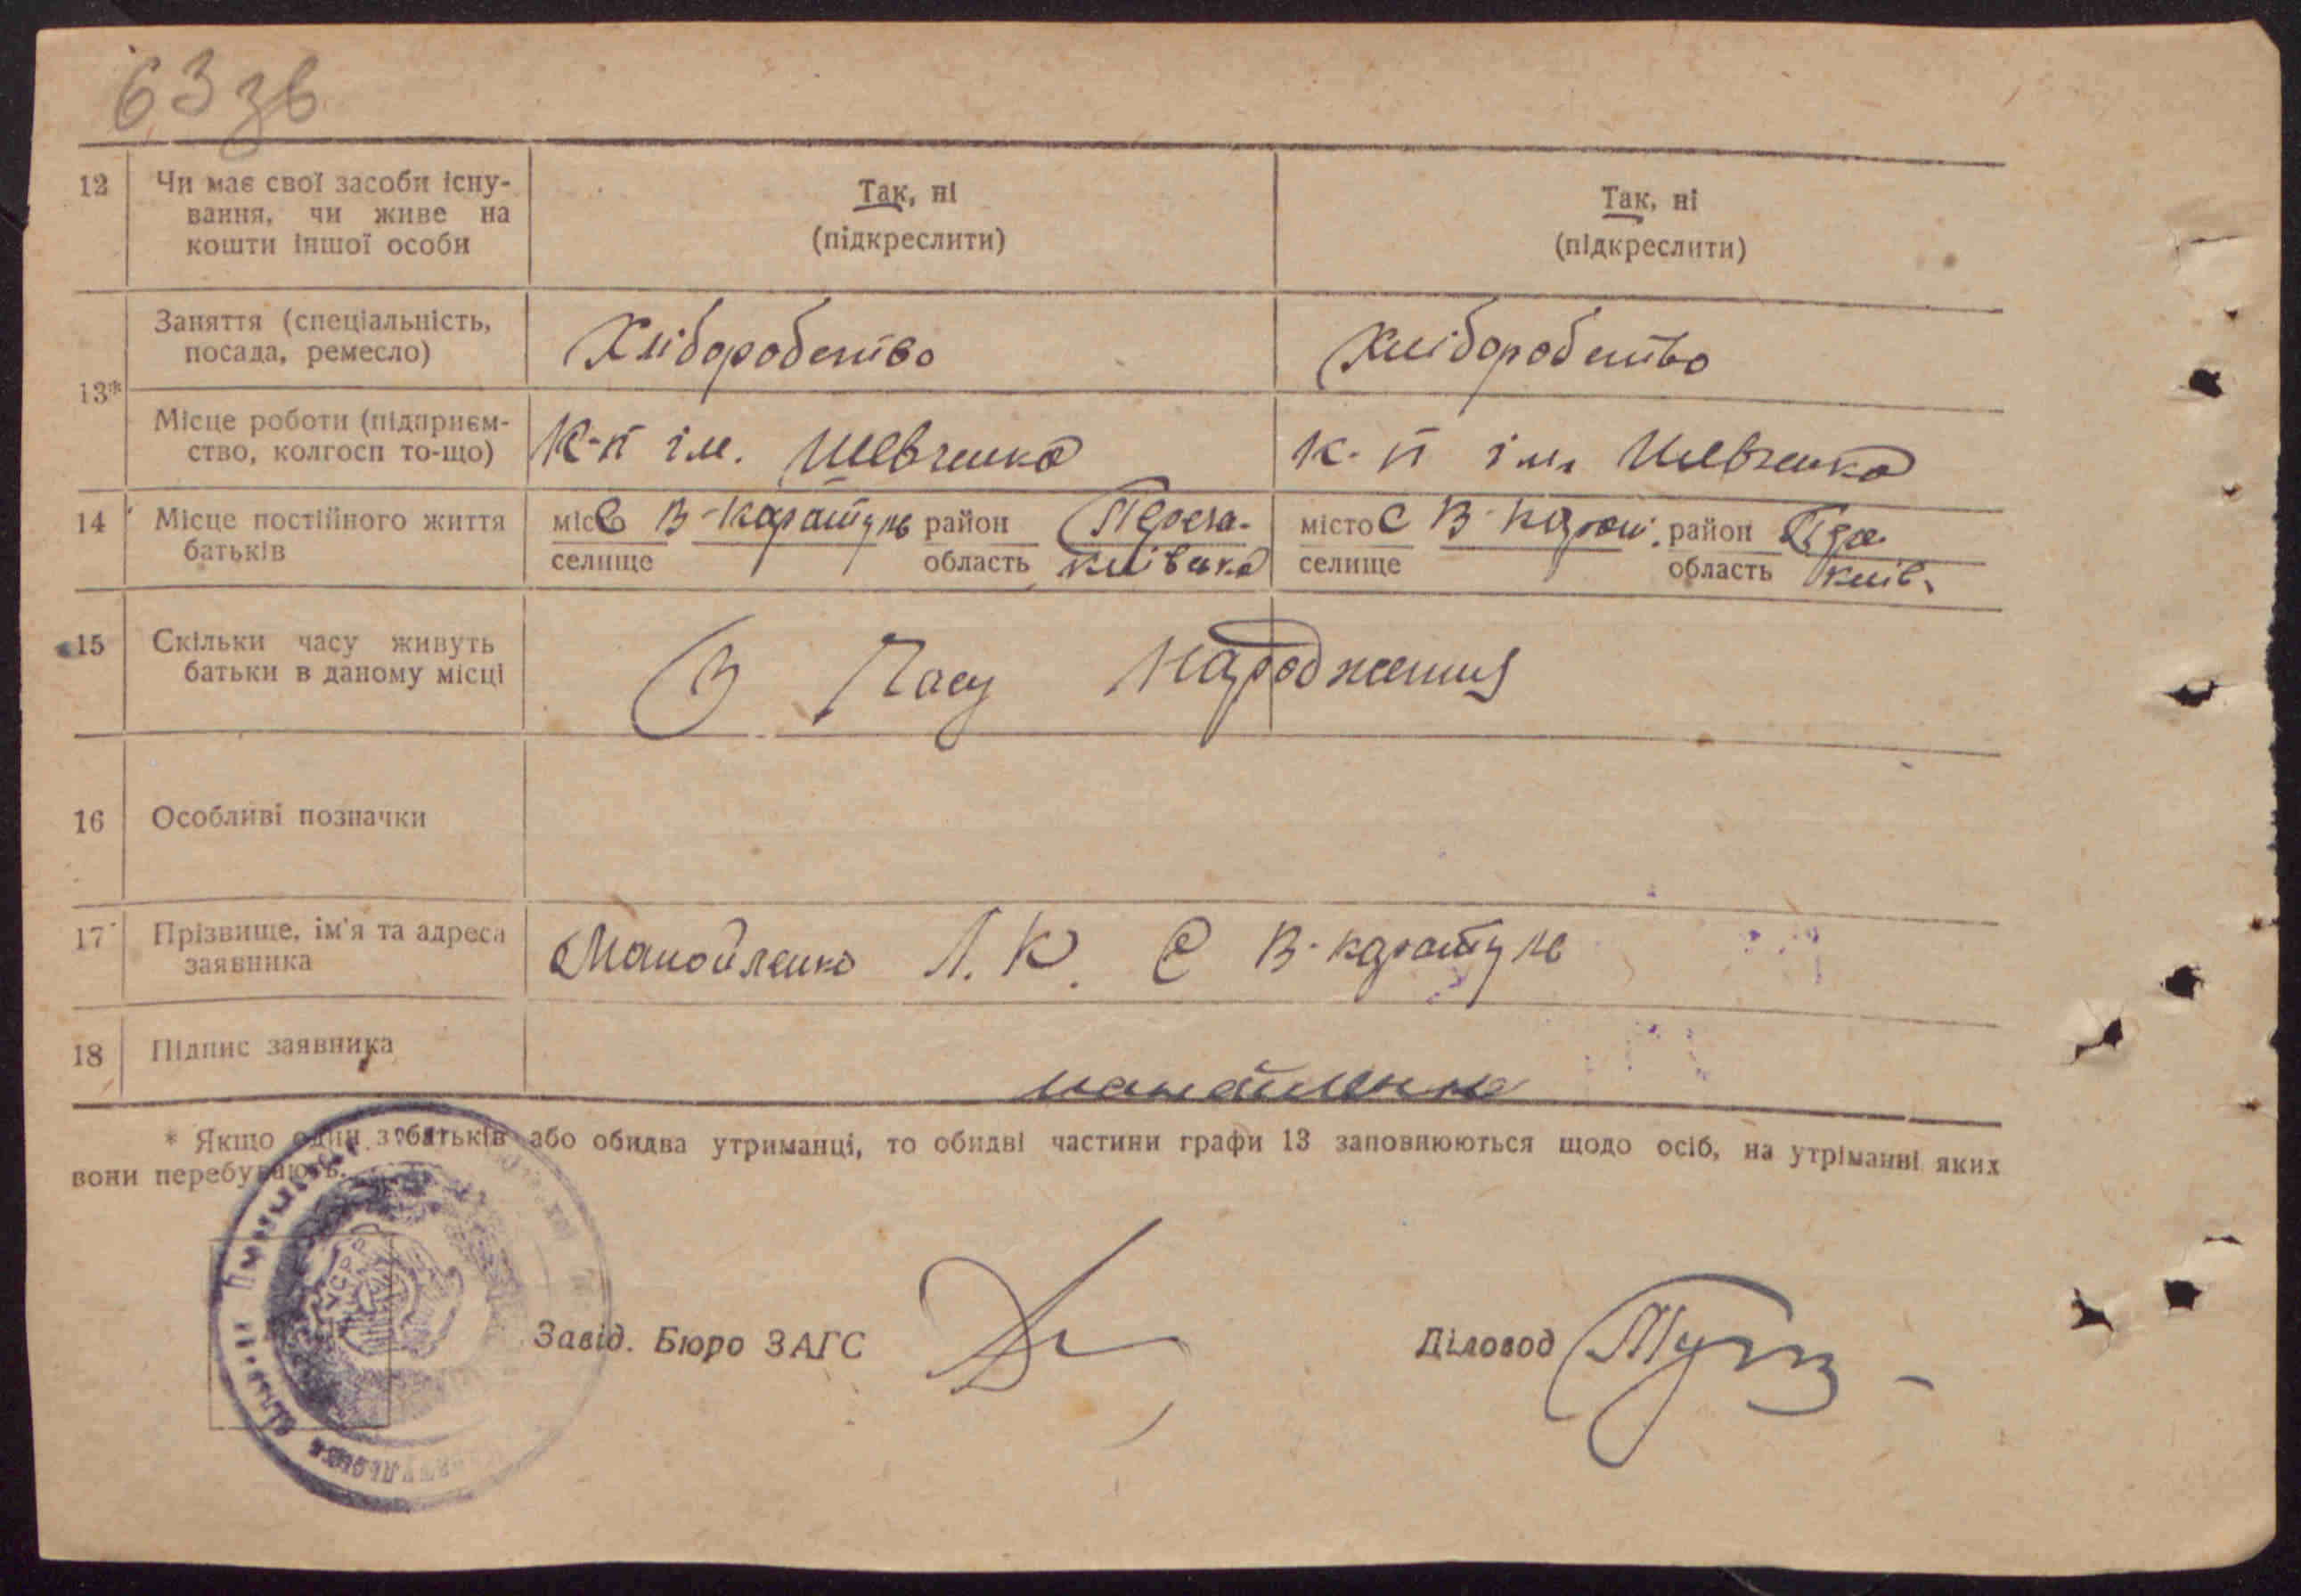 63 зв
12 Чи має свої засоби існу-
вання, чи живе на
кошти іншої особи
Так, ні
(підкреслити)
Так, ні
(підкреслити)
13*
Заняття (спеціальність,
посада, ремесло)
Хліборобство
Хліборобство
Місце роботи (підприєм-
ство, колгосп то-що)
К-п ім. Шевченка
К-п ім. Шевченка
14 Місце постійного життя
батьків
місто с В-Каратуль район Переа-
селище область Київська
місто с В-Карат. район Пере.
селище область Київ.
15 Скільки часу живуть
батьки в даному місці
З Часу Народження
16 Особливі позначки
17 Прізвище, ім'я та адреса
заявника
Манойленко Л. К. с В-Каратуль
18 Підпис заявника
манойленко
* Якщо один з батьків або обидва утриманці, то обидві частини графи 13 заповнюються щодо осіб, на утріманні яких
вони перебувають.
УСРР
Завід. Бюро ЗАГС
Діловод